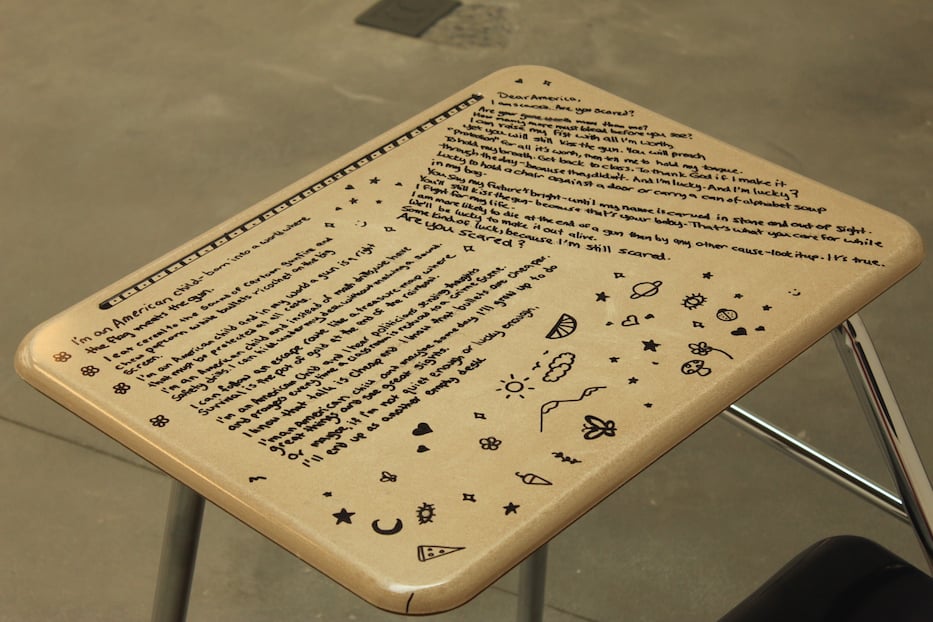 Dear America,
I am scared. Are you scared?
Are your more than me?
How many more must bleed before you see?
I can raise my fist with all I'm worth,
yet you will still kiss the gun. You will preach
"Protection" for all it's worth, tell me to hold my tongue.
To hold my breath. Get back to class. To thank God if I make it
through the day-because they didn't. And I'm lucky. And I'm lucky?
Lucky to hold a chair against a door or carry a can of alphabet soup
in my bag.
You say my future's bright-until my name is carved in stone and out of sight.
You'll still kiss the gun-because that's your baby. That's what you care for while
I fight for my life.
I am more likely to die at the end of a gun than by any other cause-look it up. It's true.
We'll be lucky to make it out alive.
Some kind of luck, because I'm still scared.
Are you scared?
I'm an American child born into a world where
the Flag means the gun.
I can to the sound of cartoon gunfire and
chew popcorn while bullets ricochet on the big
screen.
I'm an American child and in my world a gun is a right
that must be protected at all costs.
I'm an American child and instead of math drills, we have
safety drills. I can hide under my desk without making a sound.
I can follow an escape route like a treasure map where
survival is the pot of gold at the end of the rainbow.
I'm an American child and I hear politicians saying thoughts
and prayers every time a classroom is a crime scene.
I know that talk is cheap and I know that bullets are cheaper.
I'm an American child and maybe someday I'll grow up to do
great things and see great sights.
Or maybe, if I'm not quiet enough or lucky enough,
I'll end up as another empty desk.